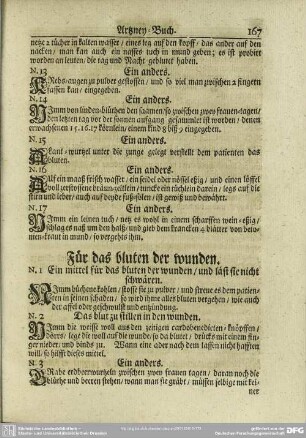 Artzney-Buch. 167
netze 2 tücher in kalten wasser / eines leg auf den kopff / das ander auf den
nacken / man kan auch ein nasses tuch in mund geben; es ist probirt
worden an leuten / die tag und nacht geblutet haben.
N. 13 Ein anders.
Krebs-augen zu pulver gestossen / und so viel man zwischen 2 fingern
fassen kan / eingegeben.
N. 14 Ein anders.
Nimm von linden-blüthen den saamen / so zwischen zwey frauen-tagen /
den letzten tag vor der sonnen aufgang gesammlet ist worden / denen
erwachsenen 15. 16. 17 körnlein / einem kind 8 biß 9 eingegeben.
N. 15 Ein anders.
Alant-wurtzel unter die zunge gelegt verstellt dem patienten das
bluten.
N. 16 Ein anders.
Auf ein maaß frisch wasser / ein seidel oder nössel eßig / und einen löffel
voll zerstossene / tuncke ein tüchlein darein / legs auf die
stirn und leber / auch auf beyde fußsohlen / ist gewiß und bewährt.
N. 17 Ein anders.
Nimm ein leinen tuch / netz es wohl in einem scharffen wein-eßig /
schlag es naß um den halß: und gieb dem krancken blätter von
in mund / so vergehts ihm.
Für das bluten der wunden.
N. 1 Ein mittel für das bluten der wunden / und läst sie nicht
schwären.
Nimm büchene kohlen / stosse sie zu pulver / und streue es dem patien-
ten in seinen schaden / so wird ihme alles bluten vergehen / wie auch
der affel oder geschwulst und entzündung.
N. 2 Das blut zu stillen in den wunden.
Nimm die weisse woll aus den zeitigen cardobenedicten-knöpffen /
dörre / lege die woll auf die wunde / so da blutet / drücks mit einem fin-
ger nieder / und binds zu. Wann eine ader nach dem lassen nicht hafften
will / so hilfft dieses mittel.
N. 3 Ein anders.
Grabe erdbeerwurtzeln zwischen zwen frauen tagen / daran noch die
blüthe und beeren stehen / wann man sie gräbt / müssen selbige mit kei-
ner